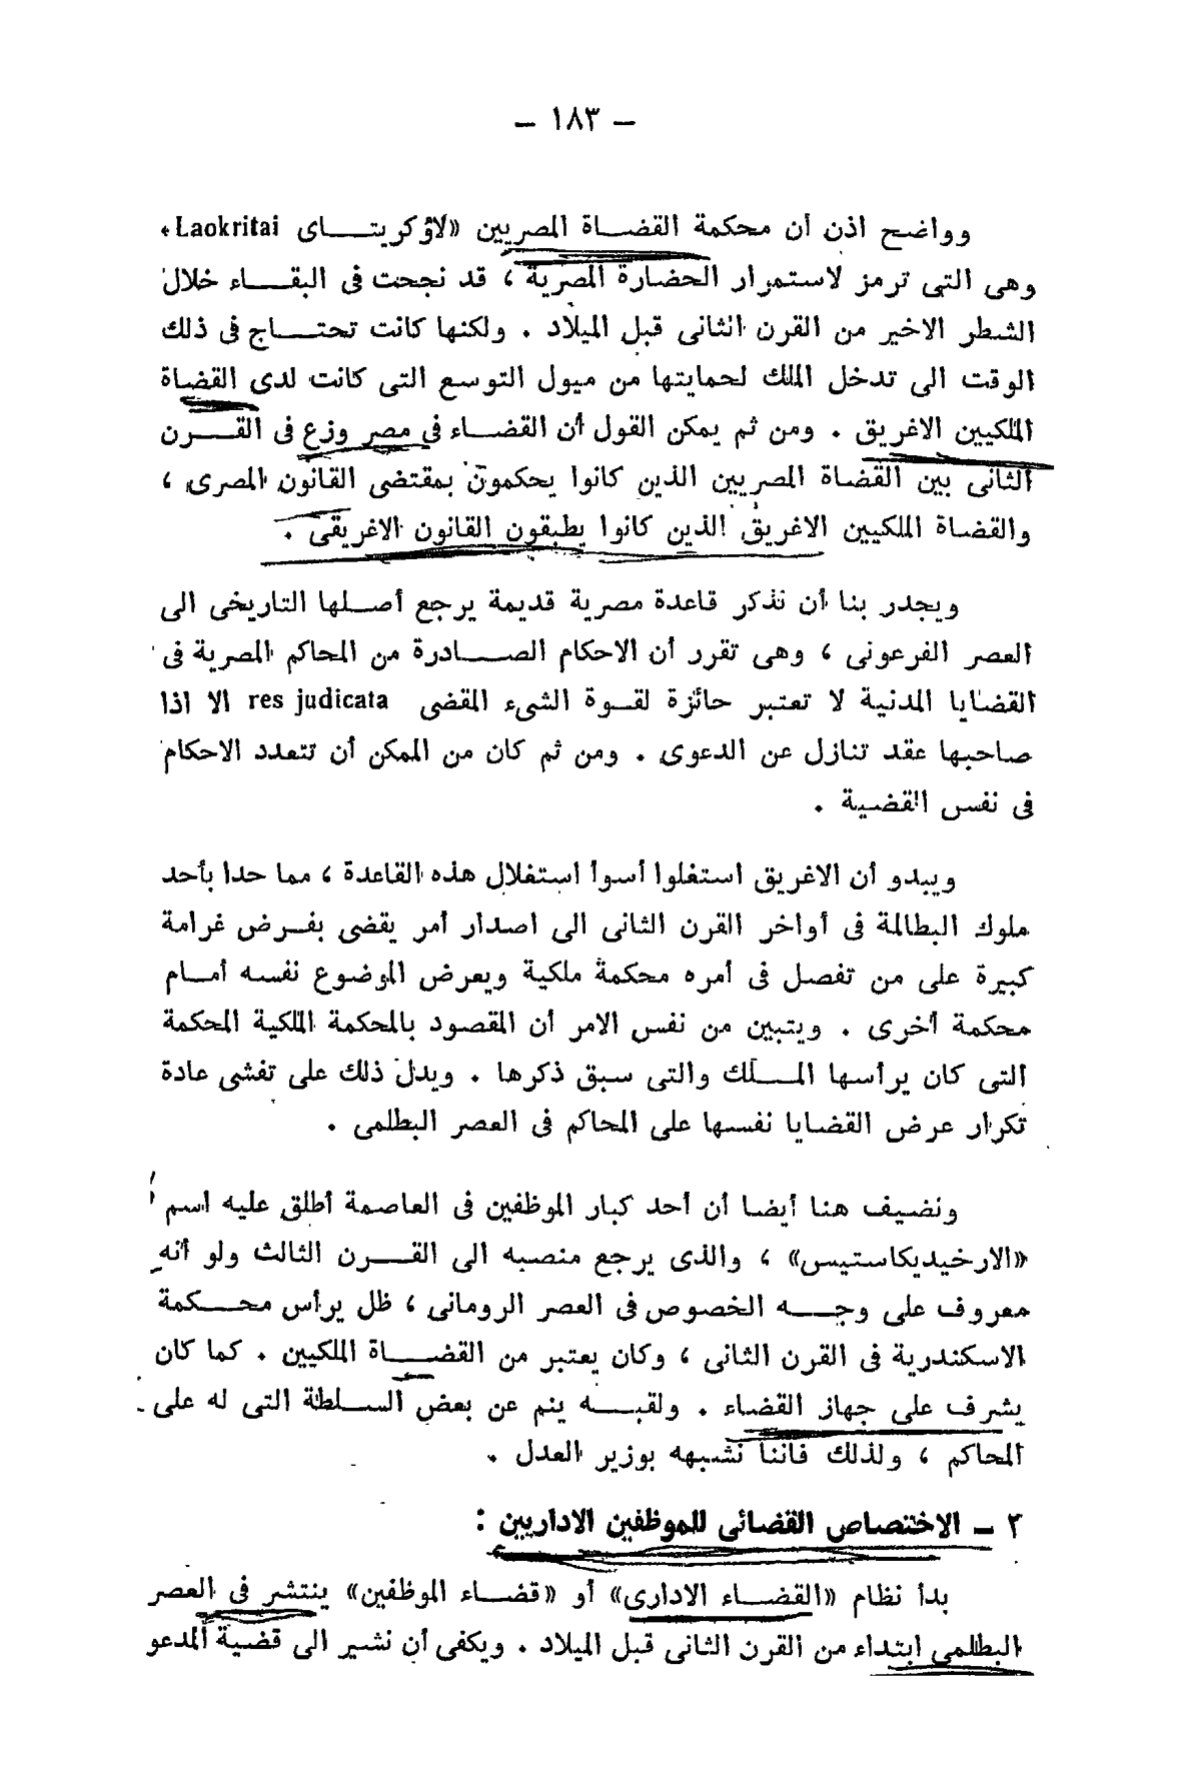 — ١٨٣ —
وواضح اذن أن محكمة القضاة المصريين «لاؤكريتاى Laokritai»
وهى التى ترمز لاستمرار الحضارة المصرية ، قد نجحت فى البقاء خلال
الشطر الاخير من القرن الثانى قبل الميلاد . ولكنها كانت تحتاج فى ذلك
الوقت الى تدخل الملك لحمايتها من ميول التوسع التى كانت لدى القضاة
الملكيين الاغريق . ومن ثم يمكن القول أن القضاء فى مصر وزع فى القرن
الثانى بين القضاة المصريين الذين كانوا يحكمون بمقتضى القانون المصرى ،
والقضاة الملكيين الاغريق الذين كانوا يطبقون القانون الاغريقى .
ويجدر بنا أن نذكر قاعدة مصرية قديمة يرجع أصلها التاريخى الى
العصر الفرعونى ، وهى تقرر أن الاحكام الصادرة من المحاكم المصرية فى
القضايا المدنية لا تعتبر حائزة لقوة الشىء المقضى res judicata الا اذا
صاحبها عقد تنازل عن الدعوى . ومن ثم كان من الممكن أن تتعدد الاحكام
فى نفس القضية .
ويبدو أن الاغريق استغلوا أسوأ استغلال هذه القاعدة ، مما حدا بأحد
ملوك البطالمة فى أواخر القرن الثانى الى اصدار أمر يقضى بفرض غرامة
كبيرة على من تفصل فى أمره محكمة ملكية ويعرض الموضوع نفسه أمام
محكمة أخرى . ويتبين من نفس الامر أن المقصود بالمحكمة الملكية المحكمة
التى كان يرأسها الملك والتى سبق ذكرها . ويدل ذلك على تفشى عادة
تكرار عرض القضايا نفسها على المحاكم فى العصر البطلمى .
ونضيف هنا أيضا أن أحد كبار الموظفين فى العاصمة أطلق عليه اسم
«الارخيديكاستيس» ، والذى يرجع منصبه الى القرن الثالث ولو أنه
معروف على وجه الخصوص فى العصر الرومانى ، ظل يرأس محكمة
الاسكندرية فى القرن الثانى ، وكان يعتبر من القضاة الملكيين . كما كان
يشرف على جهاز القضاء . ولقبه ينم عن بعض السلطة التى له على
المحاكم ، ولذلك فاننا نشبهه بوزير العدل .
٢ — الاختصاص القضائى للموظفين الاداريين :
بدأ نظام «القضاء الادارى» أو «قضاء الموظفين» ينتشر فى العصر
البطلمى ابتداء من القرن الثانى قبل الميلاد . ويكفى أن نشير الى قضية المدعو